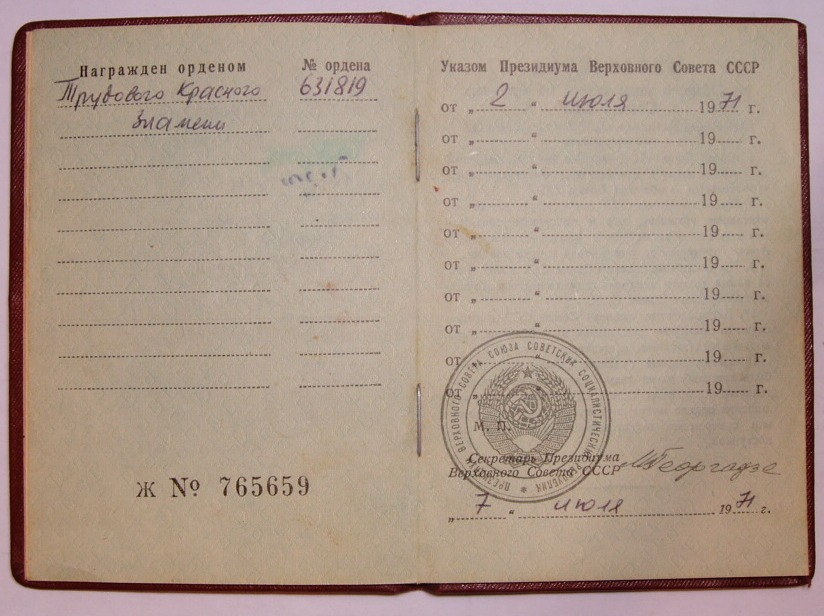 Награжден орденом
№ ордена
Трудового Красного
631819
Знамени
Ж № 765659
Указом Президиума Верховного Совета СССР
от „ 2 “ июля 1971 г.
от „ “ 19 г.
от „ “ 19 г.
от „ “ 19 г.
от „ “ 19 г.
от „ “ 19 г.
от „ “ 19 г.
от „ “ 19 г.
от „ “ 19 г.
от „ “ 19 г.
ПРЕЗИДИУМ ВЕРХОВНОГО СОВЕТА СОЮЗА СОВЕТСКИХ СОЦИАЛИСТИЧЕСКИХ РЕСПУБЛИК
М. П.
Секретарь Президиума
Верховного Совета СССР
МГеоргадзе
„ 7 “ июля 1971 г.